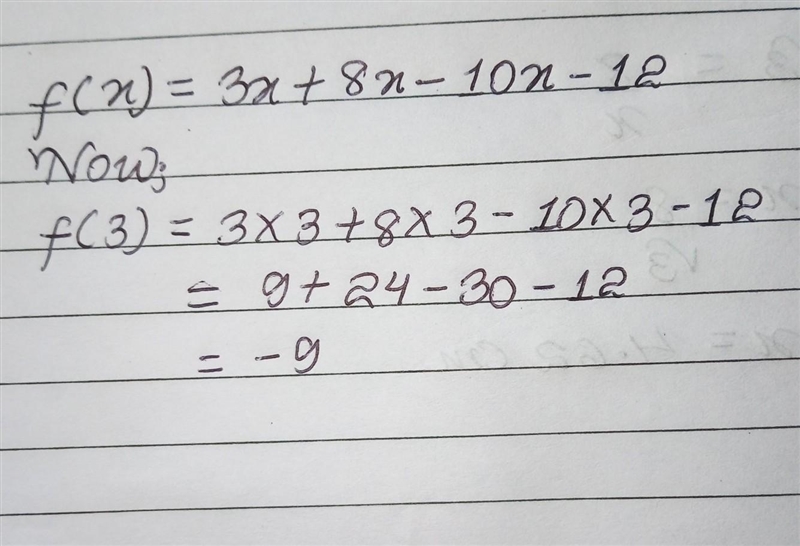 f(x) = 3x + 8x - 10x - 12
Now;
f(3) = 3 × 3 + 8 × 3 - 10 × 3 - 12
= 9 + 24 - 30 - 12
= - 9